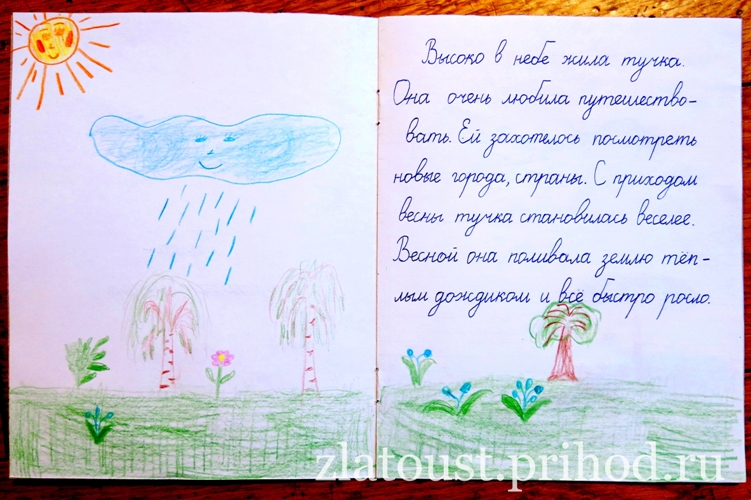 Высоко в небе жила тучка.
Она очень любила путешество-
вать. Ей захотелось посмотреть
новые города, страны. С приходом
весны тучка становилась веселее.
Весной она поливала землю тёп-
лым дождиком и всё быстро росло.
zlatoust.prihod.ru